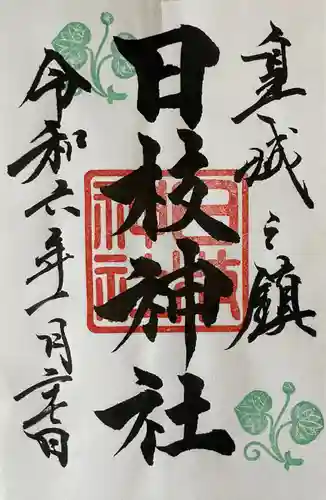 皇城之鎮
日枝神社
令和六年一月二十七日
日枝神社